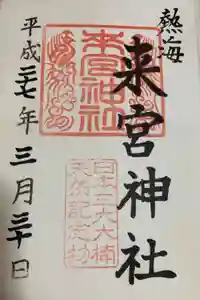 熱海
来宮神社
平成二十七年三月三十日
来宮神社
日本三大大楠
天然記念物